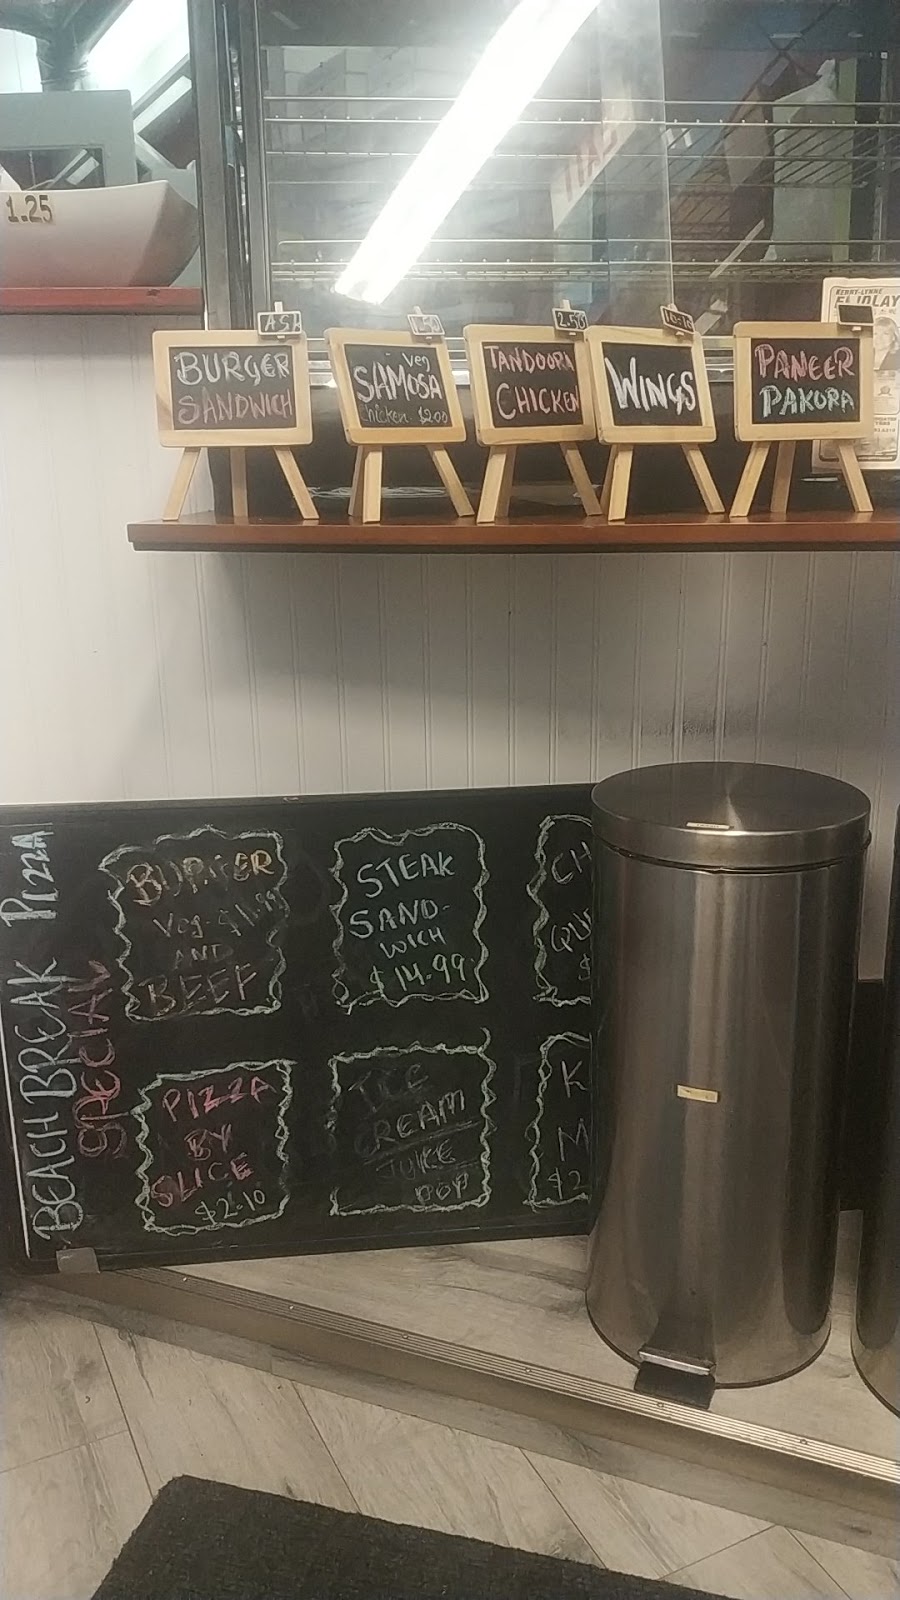 1.25
EXIT
KERRY-LYNNE
FINDLAY
BURGER
SANDWICH
Veg
SAMOSA
Chicken $2.00
2.50
TANDOORI
CHICKEN
WINGS
PANEER
PAKORA
BEACH BREAK PIZZA
SPECIAL
BURGER
Veg-$1.99
AND
BEEF
STEAK
SAND-
WICH
$14.99
CH
$
PIZZA
BY
SLICE
$2.10
ICE
CREAM
JUICE
POP
K
M
$2